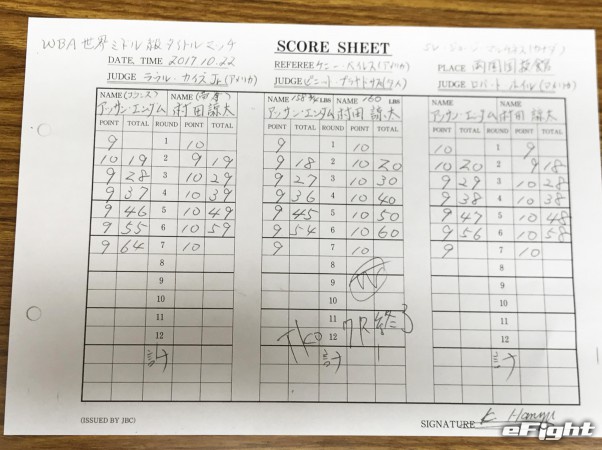 WBA世界ミドル級タイトルマッチ
SCORE SHEET
DATE, TIME 2017.10.22
REFEREE ケニー・ベイレス(アメリカ)
PLACE 両国国技館
JUDGE ラウル・カイズJr(アメリカ)
JUDGE
JUDGE ロバート
NAME (フランス) NAME
NAME 158 3/4 NAME 160 LBS
NAME NAME
アッサン・エンダム 村田諒太 アッサン・エンダム 村田諒太 アッサン・エンダム 村田諒太
POINT TOTAL ROUND POINT TOTAL POINT TOTAL ROUND POINT TOTAL POINT TOTAL ROUND POINT TOTAL
9 1 10 9 1 10 10 1 9
10 19 2 9 19 9 18 2 10 20 10 20 2 9 18
9 28 3 10 29 9 27 3 10 30 9 29 3 10 28
9 37 4 10 39 9 36 4 10 40 9 38 4 10 38
9 46 5 10 49 9 45 5 10 50 9 47 5 10 48
9 55 6 10 59 9 54 6 10 60 9 56 6 10 58
9 64 7 10 9 7 10 9 7 10
8 8 8
9 9 W 9
10 10 10
11 11 11
12 12 12
TKO 7R終了
(ISSUED BY JBC)
SIGNATURE
eFight